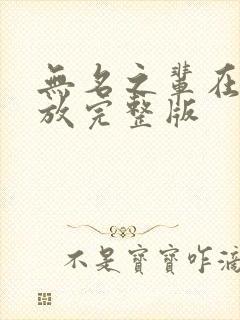 無名之輩在
放完整版
不是寶寶咋滴